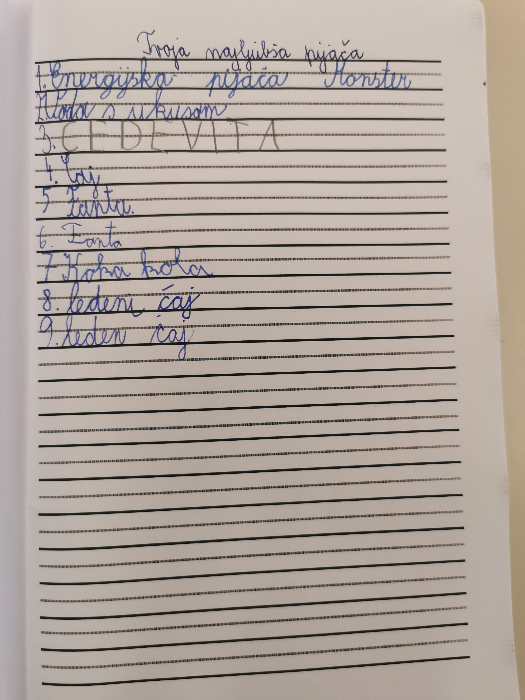 Tvoja najljubša pijača
1. Energijska pijača Monster
2. Voda s ukusom
3. CEDEVITA
4. Čaj
5. Fanta.
6. Fanta
7 Koka kola
8. ledeni čaj
9. leden čaj